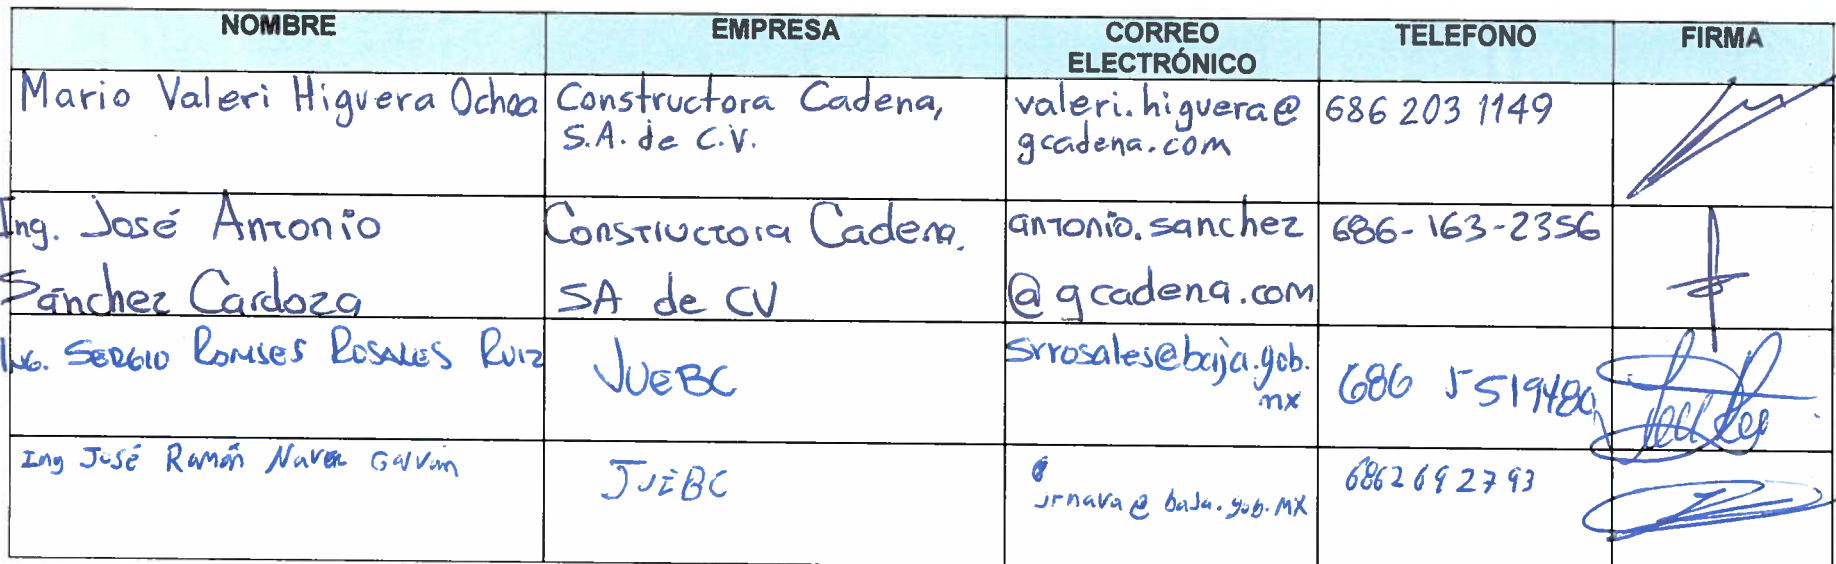 NOMBRE EMPRESA CORREO ELECTRÓNICO TELEFONO FIRMA
Mario Valeri Higuera Ochoa
Constructora Cadena,
S.A. de C.V.
valeri.higuera@
gcadena.com
686 203 1149
Ing. José Antonio
Sánchez Cardoza
Constructora Cadena.
SA de CV
antonio.sanchez
@gcadena.com
686-163-2356
Ing. SERGIO ROSALES RUIZ
JUEBC
srrosales@baja.gob.
mx
686 5519480
Ing José Ramón Nava Galván
JUEBC
jrnava@baja.gob.MX
6862692793